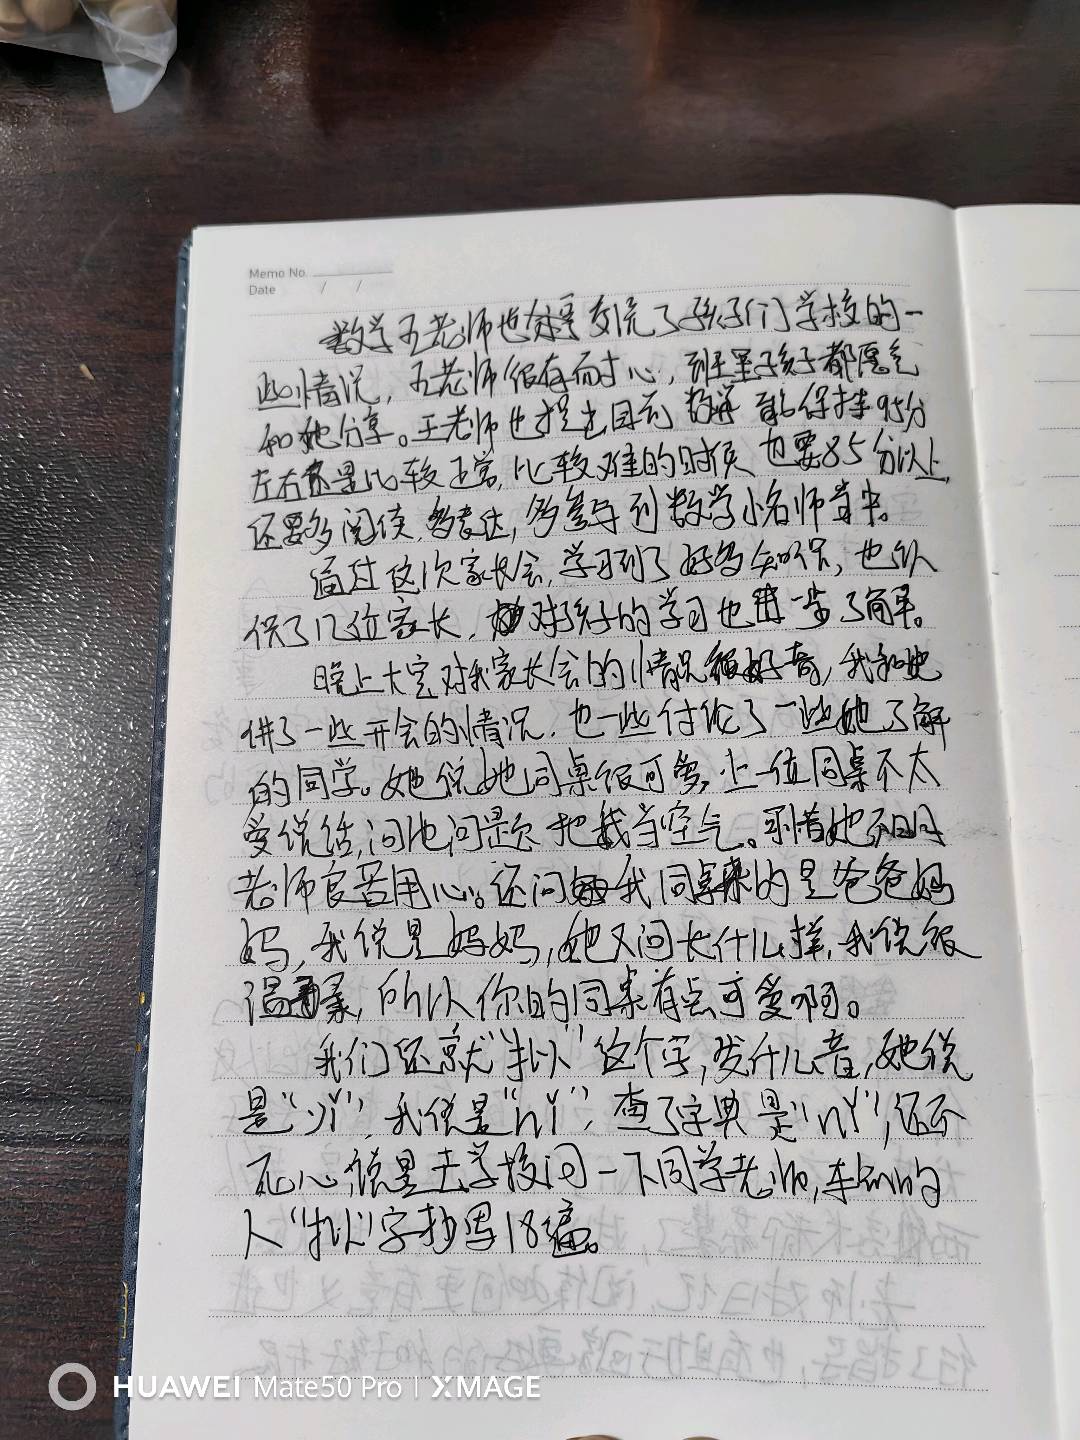 Memo No.
Date / /
数学王老师也 交流了孩子们学校的一
些情况，王老师很有耐心，班里孩子都愿意
和她分享。王老师也提出目前数学能保持95分
左右都是比较正常，比较难的时候也要85分以上，
还要多阅读，多表达，多参与到数学小名师当中。
通过这次家长会，学习到了好多知识，也认
识了几位家长，对孩子的学习也进一步了解。
晚上大宝对我家长会的情况很好奇，我和她
讲了一些开会的情况，也一些讨论了一些她了解
的同学。她说她同桌很可爱，上一位同桌不太
爱说话，问他问题 把我当空气。 她 明
老师良苦用心。还问我同桌来的是爸爸妈
妈，我说是妈妈，她又问长什么样，我说很
温柔，所以你的同桌有点可爱啊。
我们还就“拟”这个字，发什么音，她说
是“yǐ”，我说是“nǐ”，查了字典是“nǐ”，还不
死心，说是去学校问一下同学老师，
人“拟”字抄写18遍。
HUAWEI Mate50 Pro | XMAGE